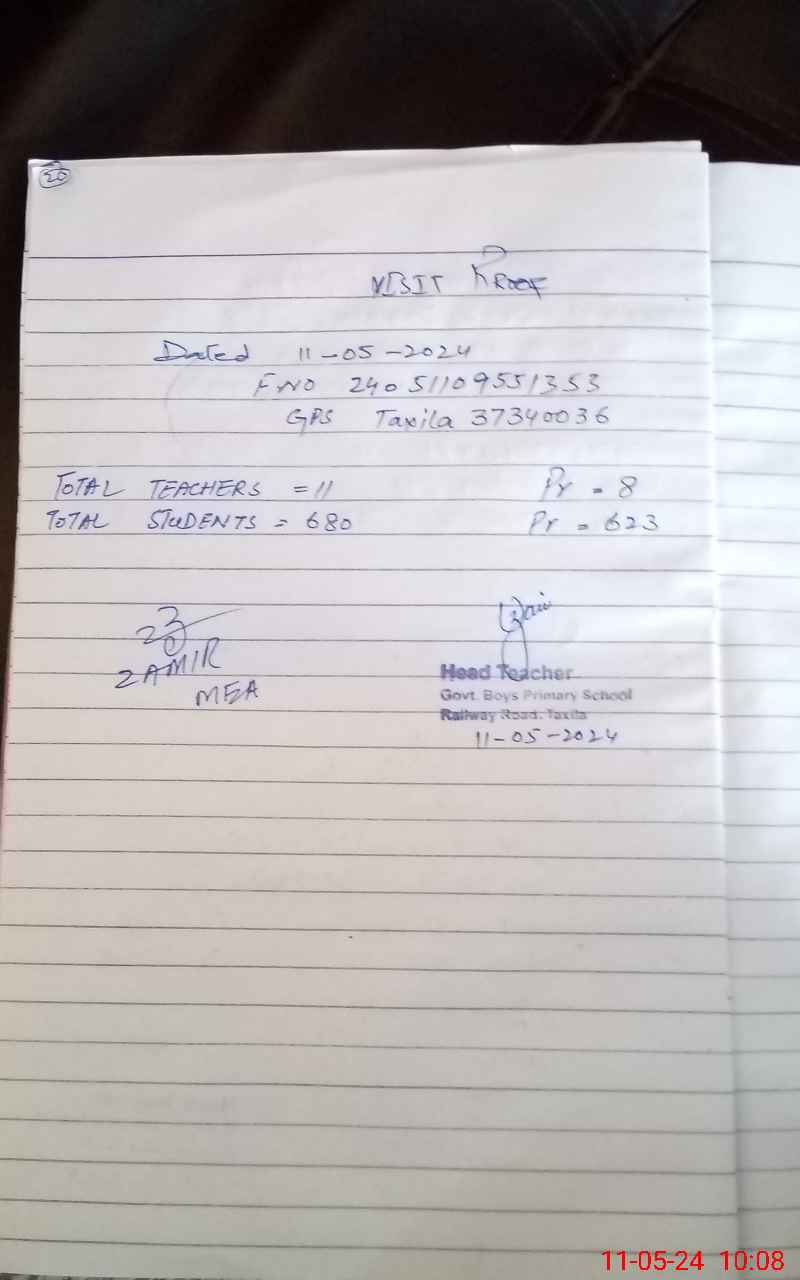 20
VISIT PROOF
Dated 11-05-2024
F NO 24051109551353
GPS Taxila 37340036
TOTAL TEACHERS = 11 Pr = 8
TOTAL STUDENTS = 680 Pr = 623
ZAMIR
MEA
Head Teacher
Govt. Boys Primary School
Railway Road. Taxila
11-05-2024
11-05-24 10:08